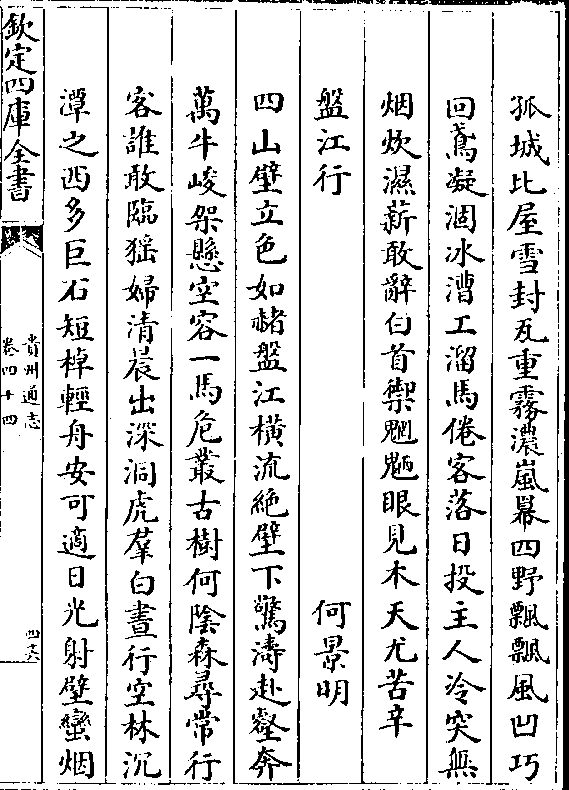 孤城比屋雪封瓦重霧濃嵐羃四野飄飄風凹巧
回鳶凝涸冰漕工溜馬倦客落日投主人冷突無
烟炊濕薪敢辭白首禦魍魎眼見木天尤苦辛
盤江行 何景明
四山壁立色如赭盤江橫流絶壁下驚濤赴壑奔
萬牛峻架懸空容一馬危叢古樹何陰森尋常行
客誰敢臨猺婦清晨出深洞虎羣白晝行空林沉
潭之西多巨石短棹輕舟安可適日光射壁蠻烟
欽定四庫全書
貴州通志
卷四十四